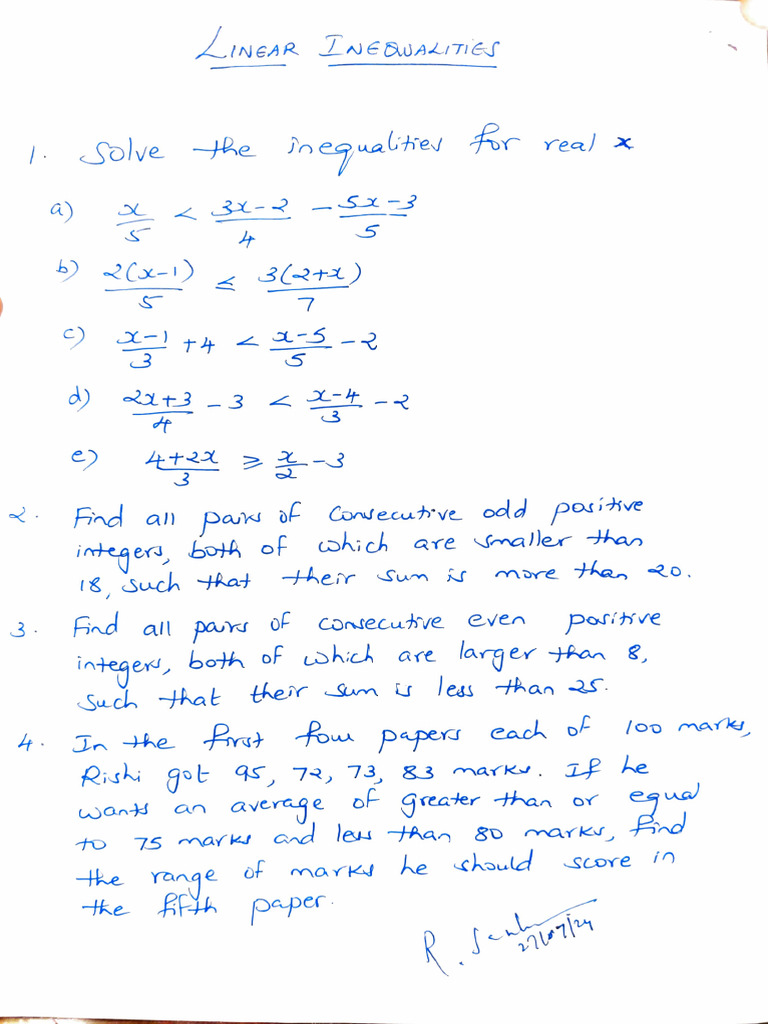 LINEAR INEQUALITIES
1. Solve the inequalities for real x
a) x/5 < (3x-2)/4 - (5x-3)/5
b) 2(x-1)/5 ≤ 3(2+x)/7
c) (x-1)/3 + 4 < (x-5)/5 - 2
d) (2x+3)/4 - 3 < (x-4)/3 - 2
e) (4+2x)/3 ≥ x/2 - 3
2. Find all pairs of consecutive odd positive
integers, both of which are smaller than
18, such that their sum is more than 20.
3. Find all pairs of consecutive even positive
integers, both of which are larger than 8,
such that their sum is less than 25.
4. In the first four papers each of 100 marks,
Rishi got 95, 72, 73, 83 marks. If he
wants an average of greater than or equal
to 75 marks and less than 80 marks, find
the range of marks he should score in
the fifth paper.
R.
27/07/24